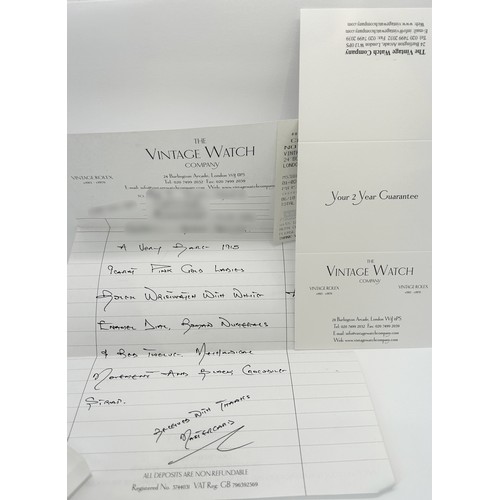 THE
VINTAGE WATCH
COMPANY
VINTAGE ROLEX
24 Burlington Arcade, London W1J 0PS
Tel: 020 7499 2032 Fax: 020 7499 2039
A Very Early 1915
9carat Pink Gold Ladies
Rolex Wristwatch With White
Enamel Dial, Roman Numerals
& Red Twelve. Mechanical
Movement And Black Crocodile
Strap.
Received With Thanks
Mastercard
ALL DEPOSITS ARE NON REFUNDABLE
Registered No. 3744031 VAT Reg: GB 796592569
The Vintage Watch Company
24 Burlington Arcade, London W1J 0PS
Tel. 020 7499 2032 Fax. 020 7499 2039
E-mail info@vintagewatchcompany.com
Web: www.vintagewatchcompany.com
Your 2 Year Guarantee
THE
VINTAGE WATCH
COMPANY
VINTAGE ROLEX
VINTAGE ROLEX
24 Burlington Arcade, London W1J 0PS
Tel: 020 7499 2032 Fax: 020 7499 2039
Email: info@vintagewatchcompany.com
Web: www.vintagewatchcompany.com